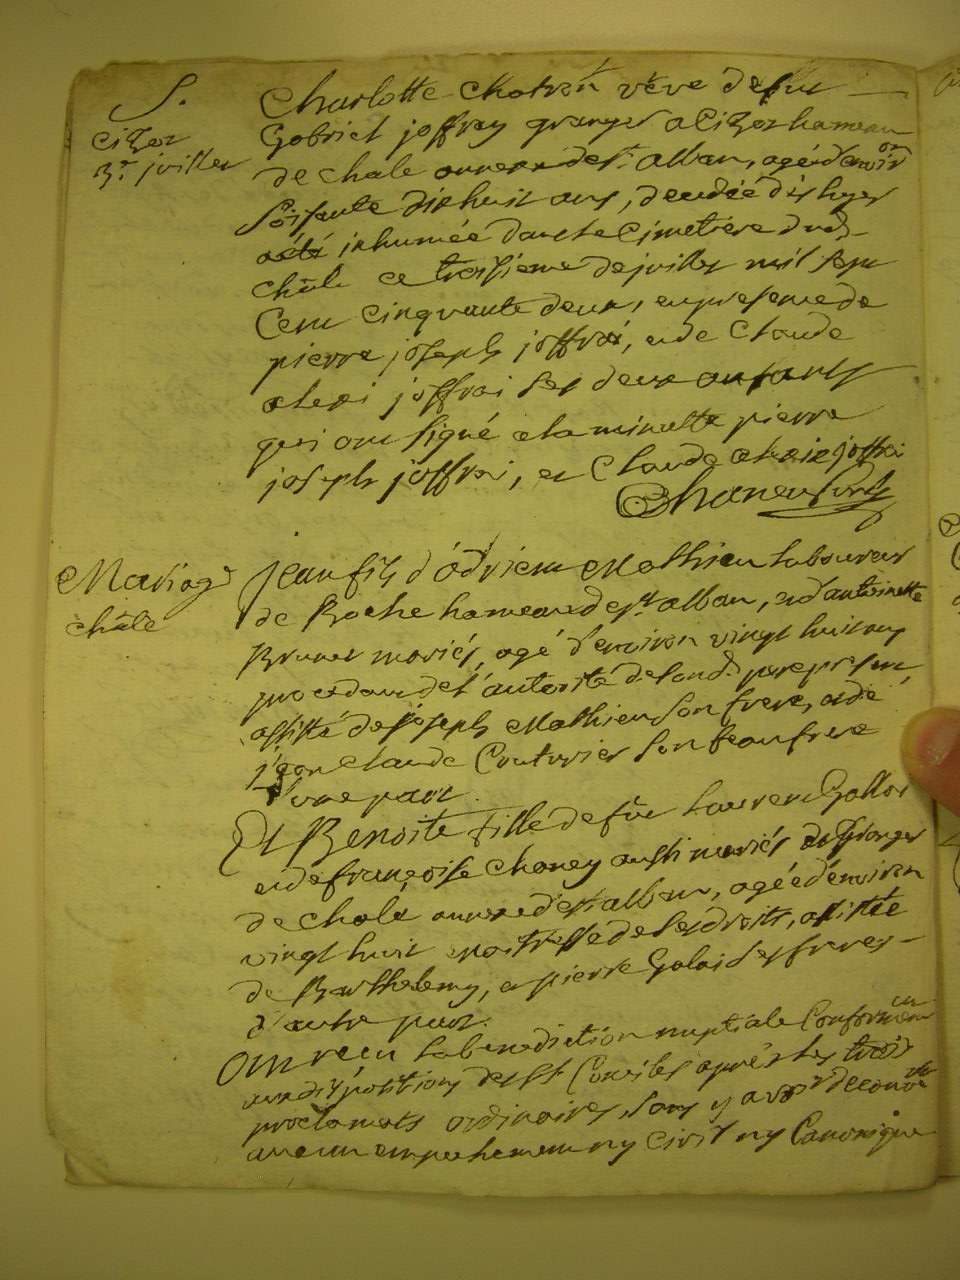 S.
Cizer
3e. juillet
Charlotte veve de feu
Gabriel joffray granger a Cizer hameau
de chale annexe de st. alban, agée d'environ
soissante dixhuit ans, decedée dès hyer
a été inhumée dans le Cimetiere dud.
châle ce troisieme de juillet mil sept
Cent cinquante deux, en presence de
pierre joseph joffrai, et de Claude
alexi joffrai ses deux enfants
qui ont signé a la minutte pierre
joseph joffrai, et Claude alexi joffrai
Mariage
châle
jean fils d'Adrien Mathieu laboureur
de Roche hameau de st. alban, et d'antoinette
Brunet mariés, agé d'environ vingt huit ans
procedant de l'autorité de sond. pere present,
assisté de joseph Mathieu son frere, et de
jean Claude Couturier son beaufrere
d'une part.
Et Benoite fille de fût Laurent Galloi
et de françoise Chaney aussi mariés
de chale annexe de st alban, agée d'environ
vingt huit maitresse de ses droits, assistée
de Barthelemy, et pierre Galoi ses freres
d'autre part.
Ont recu la benediction nuptiale Conformément
aux dispositions des sts Conciles après les trois
proclamats ordinaires, sans y avoir decouvert
aucun empechement ny civil ny Canonique